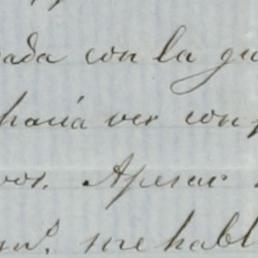 ada con la gu
haria ver con p
os. Apesar
me habl